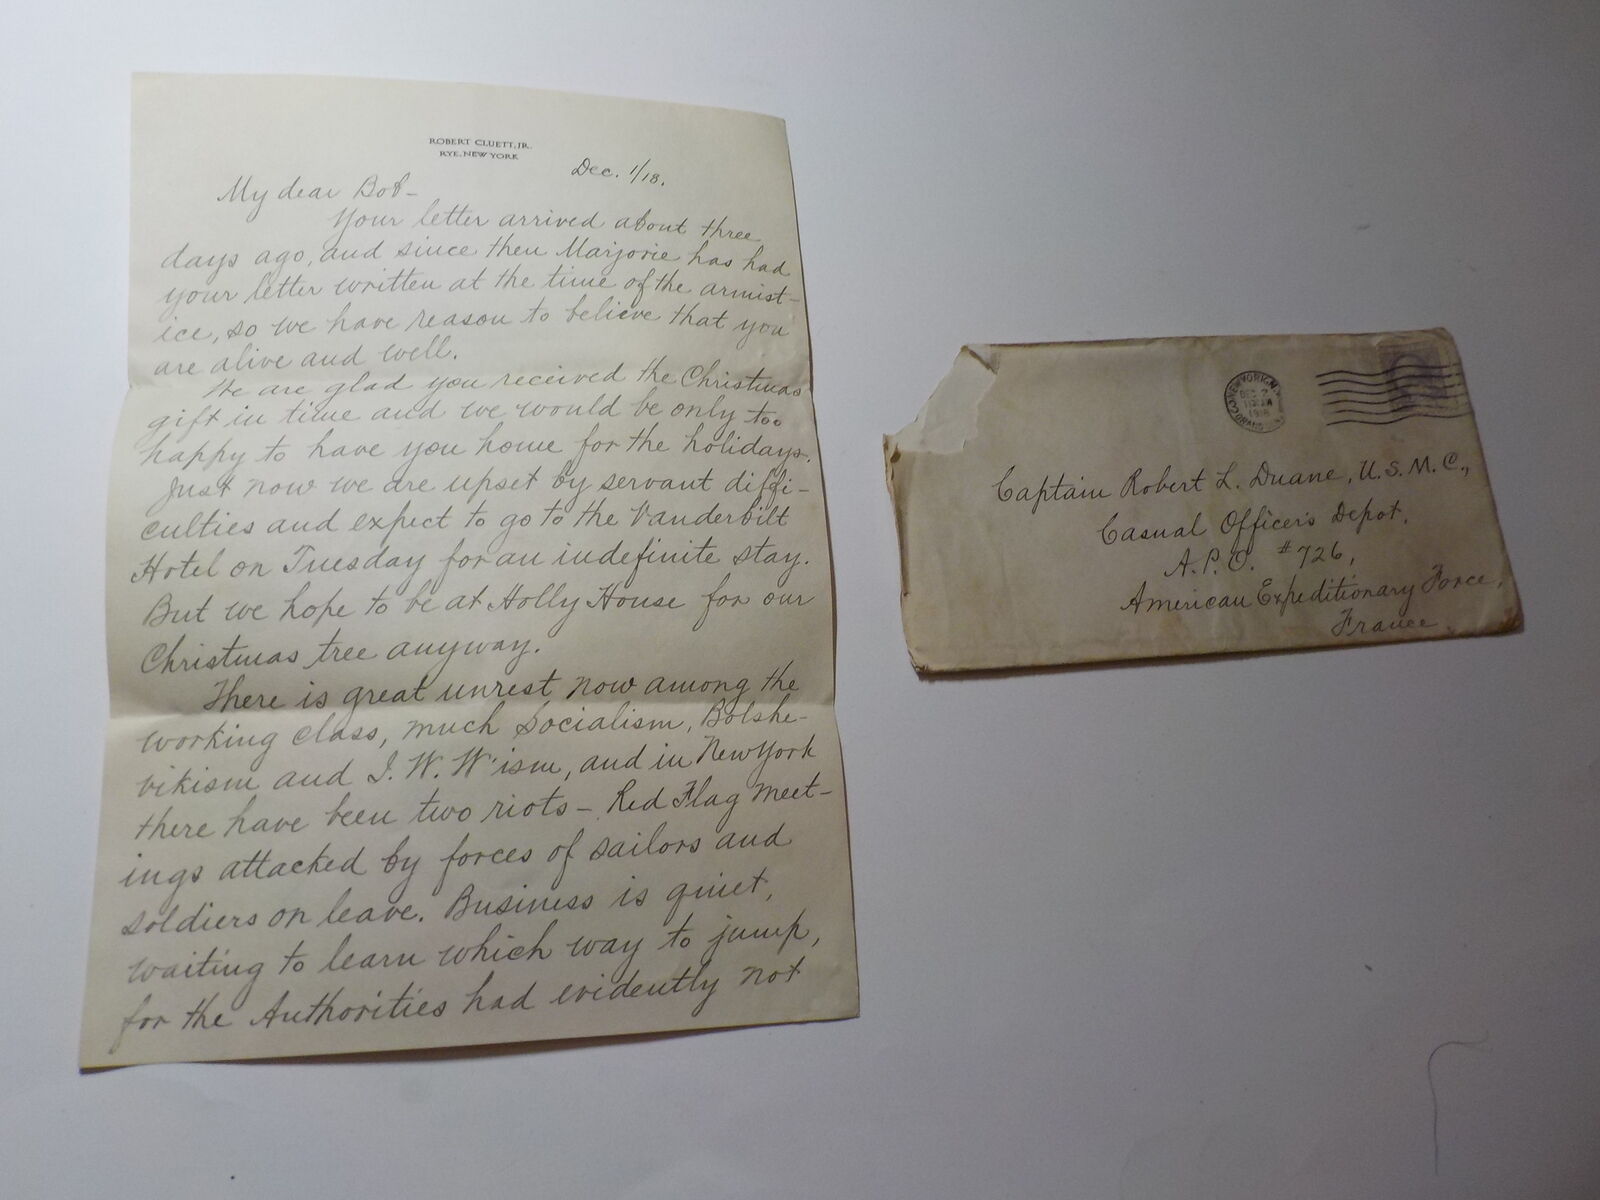 ROBERT CLUETT, JR.
RYE, NEW YORK
Dec. 1/18.
My dear Bob-
Your letter arrived about three
days ago, and since then Marjorie has had
your letter written at the time of the armist-
ice, so we have reason to believe that you
are alive and well.
We are glad you received the Christmas
gift in time and we would be only too
happy to have you home for the holidays.
Just now we are upset by servant diffi-
culties and expect to go to the Vanderbilt
Hotel on Tuesday for an indefinite stay.
But we hope to be at Holly House for our
Christmas tree anyway.
There is great unrest now among the
working class, much Socialism, Bolshe-
vikism and I.W.W'ism, and in New York
there have been two riots - Red Flag meet-
ings attacked by forces of sailors and
soldiers on leave. Business is quiet,
waiting to learn which way to jump,
for the Authorities had evidently not
NEW YORK, N.Y.
DEC 2
1918
GRAND
Captain Robert L. Duane, U.S.M.C.,
Casual Officers Depot,
A.P.O. #726,
American Expeditionary Force,
France